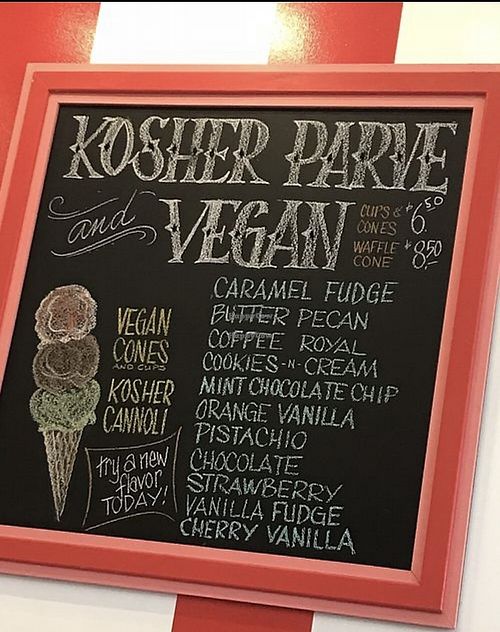 KOSHER PARVE
and VEGAN
CUPS & CONES $6.50
WAFFLE CONE $8.50
CARAMEL FUDGE
BUTTER PECAN
COFFEE ROYAL
COOKIES-N-CREAM
MINT CHOCOLATE CHIP
ORANGE VANILLA
PISTACHIO
CHOCOLATE
STRAWBERRY
VANILLA FUDGE
CHERRY VANILLA
VEGAN
CONES
AND CUPS
KOSHER
CANNOLI
try a new
flavor
TODAY!